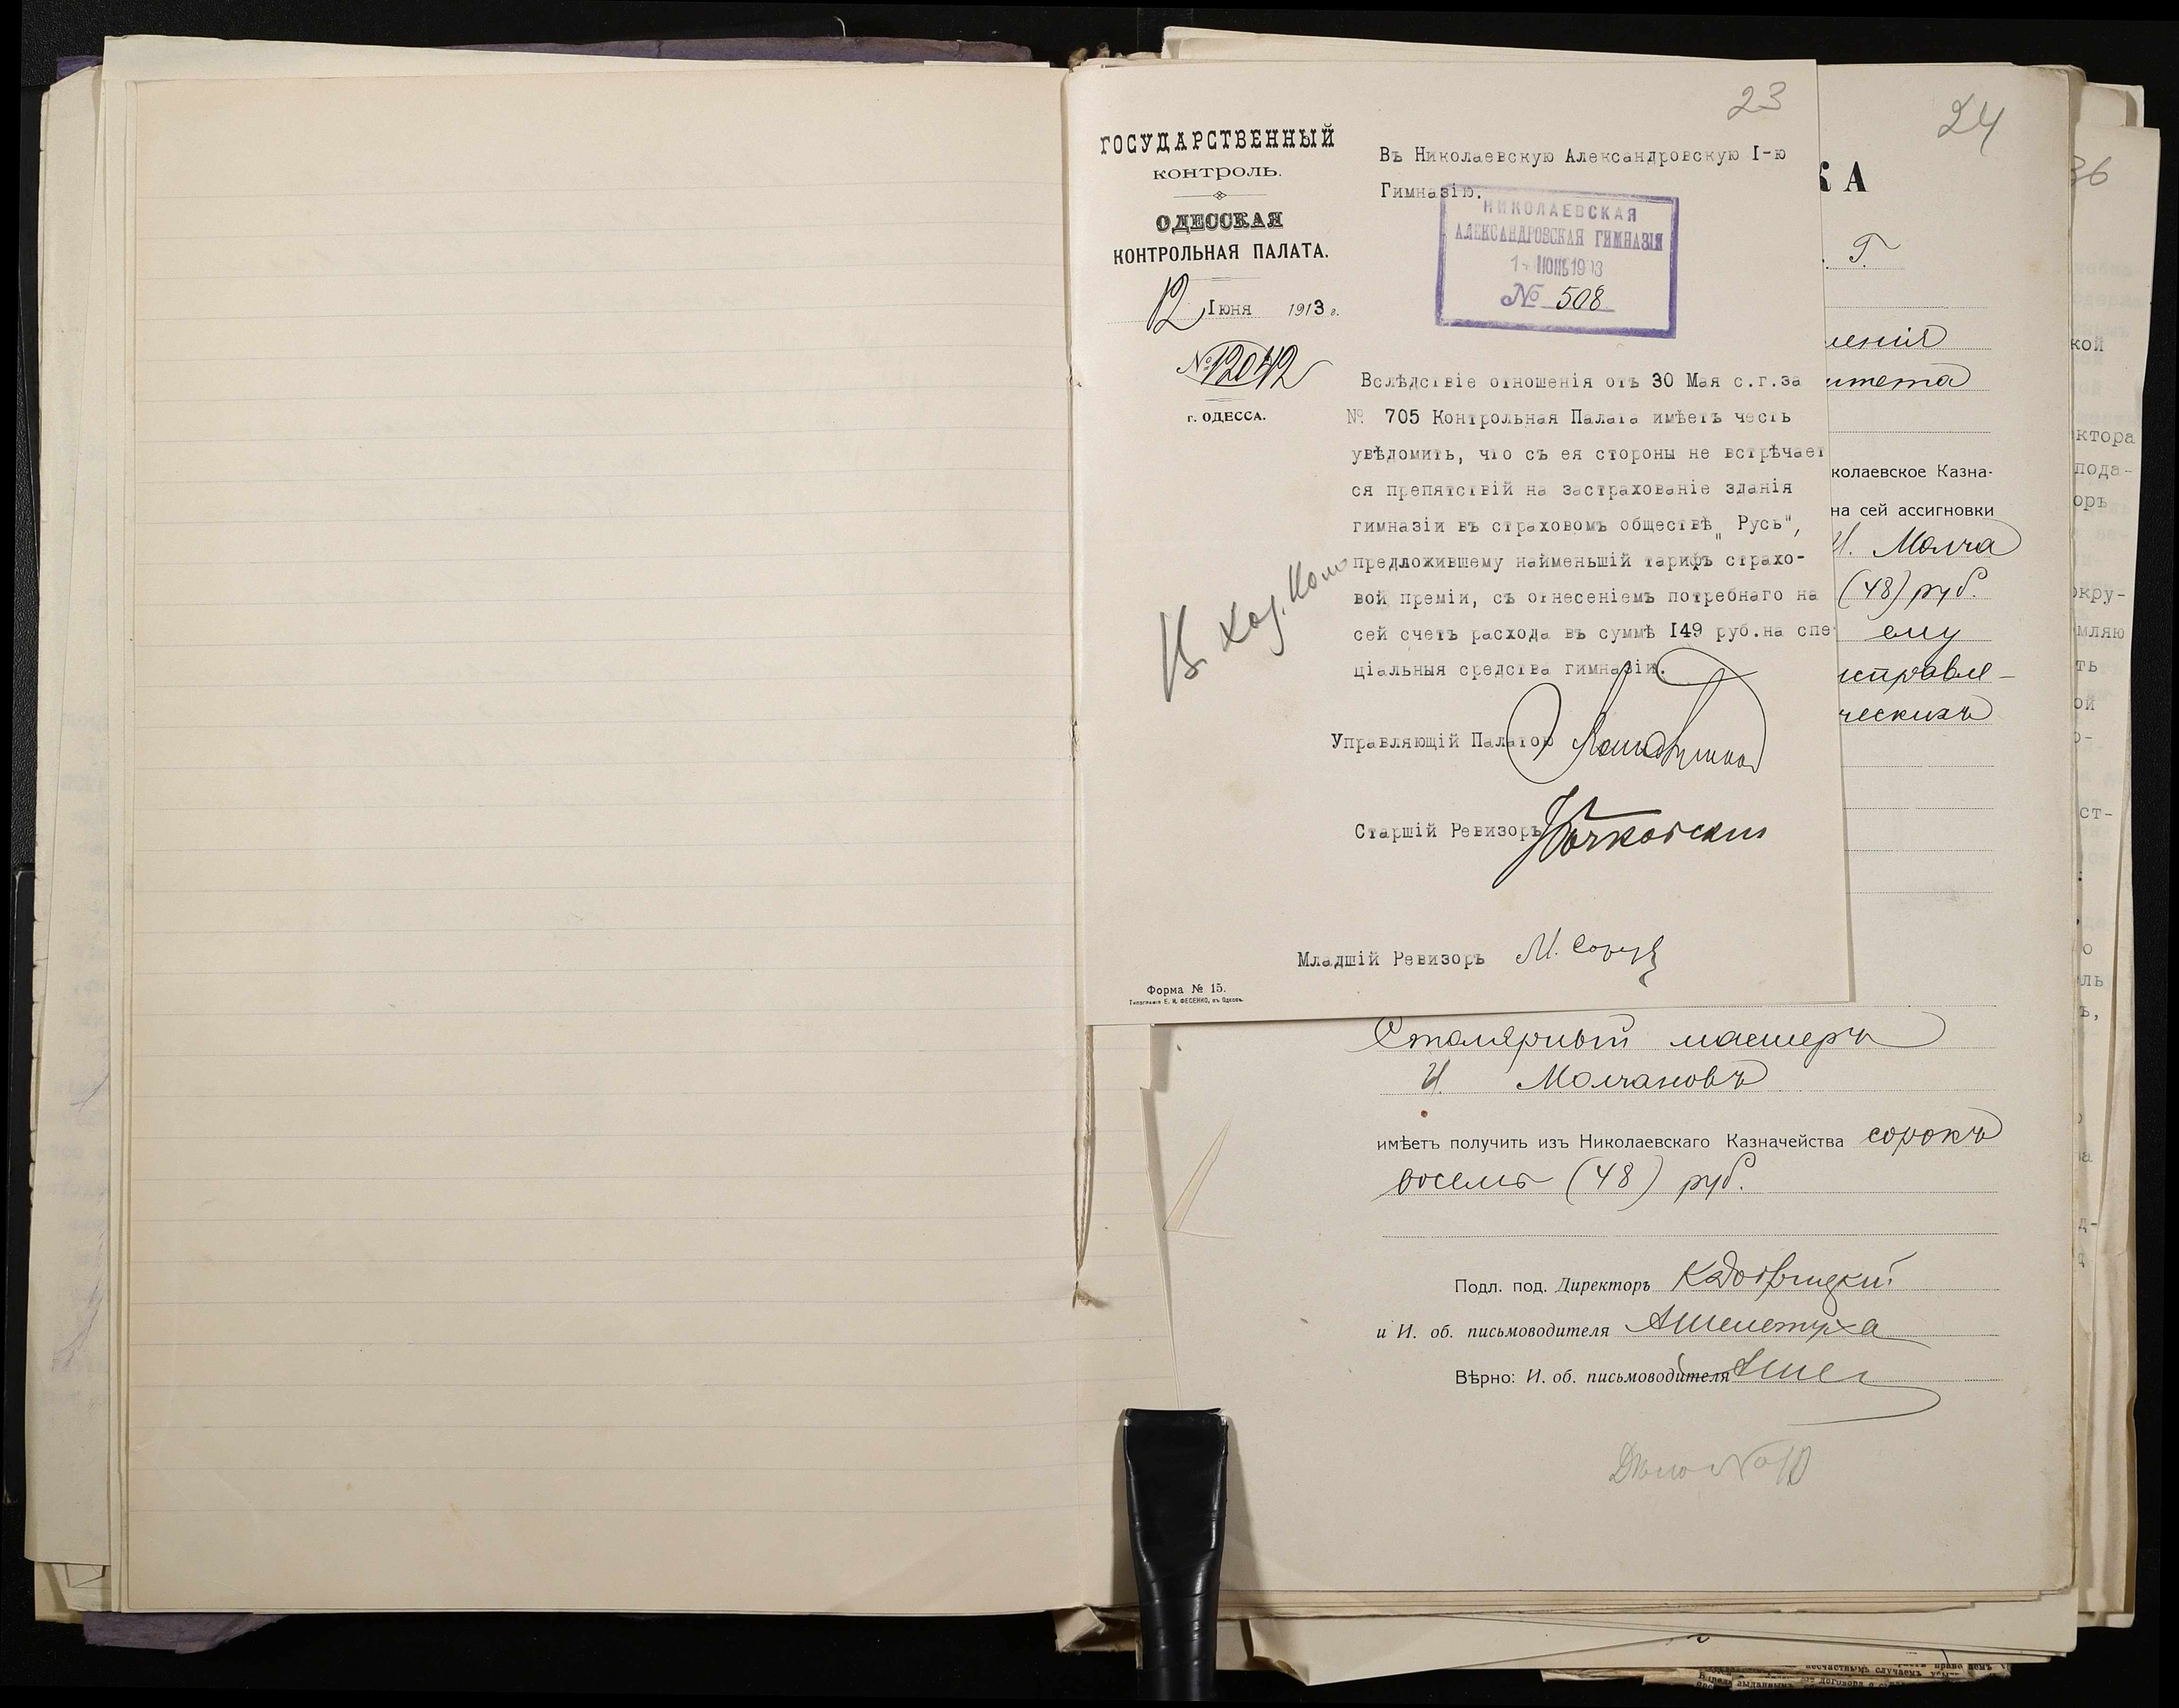 23
ГОСУДАРСТВЕННЫЙ
КОНТРОЛЬ.
ОДЕССКАЯ
КОНТРОЛЬНАЯ ПАЛАТА.
12 Iюня 1913 г.
№ 12042
г. ОДЕССА.
Въ Николаевскую Александровскую I-ю
Гимназiю.
НИКОЛАЕВСКАЯ
АЛЕКСАНДРОВСКАЯ ГИМНАЗIЯ
№ 508
Вслѣдствiе отношенiя отъ 30 Мая с.г.за
№ 705 Контрольная Палата имѣетъ честь
увѣдомить, что съ ея стороны не встрѣчает
ся препятствiй на застрахованiе зданiя
гимназiи въ страховомъ обществѣ „Русь",
предложившему найменьшiй тарифъ страхо-
вой премiи, съ отнесенiемъ потребнаго на
сей счетъ расхода въ суммѣ I49 руб.на спе-
цiальныя средства гимназiи.
Управляющiй Палатою
Старшiй Ревизоръ
Младшiй Ревизоръ М.
Форма № 15.
Типографія Е. И. ФЕСЕНКО, въ Одессѣ.
24
КА
Г.
ленія
митета
колаевское Казна-
на сей ассигновки
И. Молча
(48) руб.
ему
исправле-
ческихъ
Столярный мастеръ
И. Молчановъ
имѣетъ получить изъ Николаевскаго Казначейства сорокъ
восемь (48) руб.
Подл. под. Директоръ
и И. об. письмоводителя АШелетуха
Вѣрно: И. об. письмоводителя АШел
Дѣло № 10
36
кой
ктора
пода-
оръ
окру-
мляю
ть
ой
ст-
ль